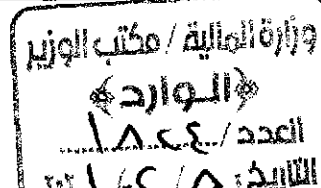 وزارة المالية / مكتب الوزير
﴿الوارد﴾
العدد / ١٨٢٢٤
التاريخ: ٨ / ٢ / ٢٠٢١